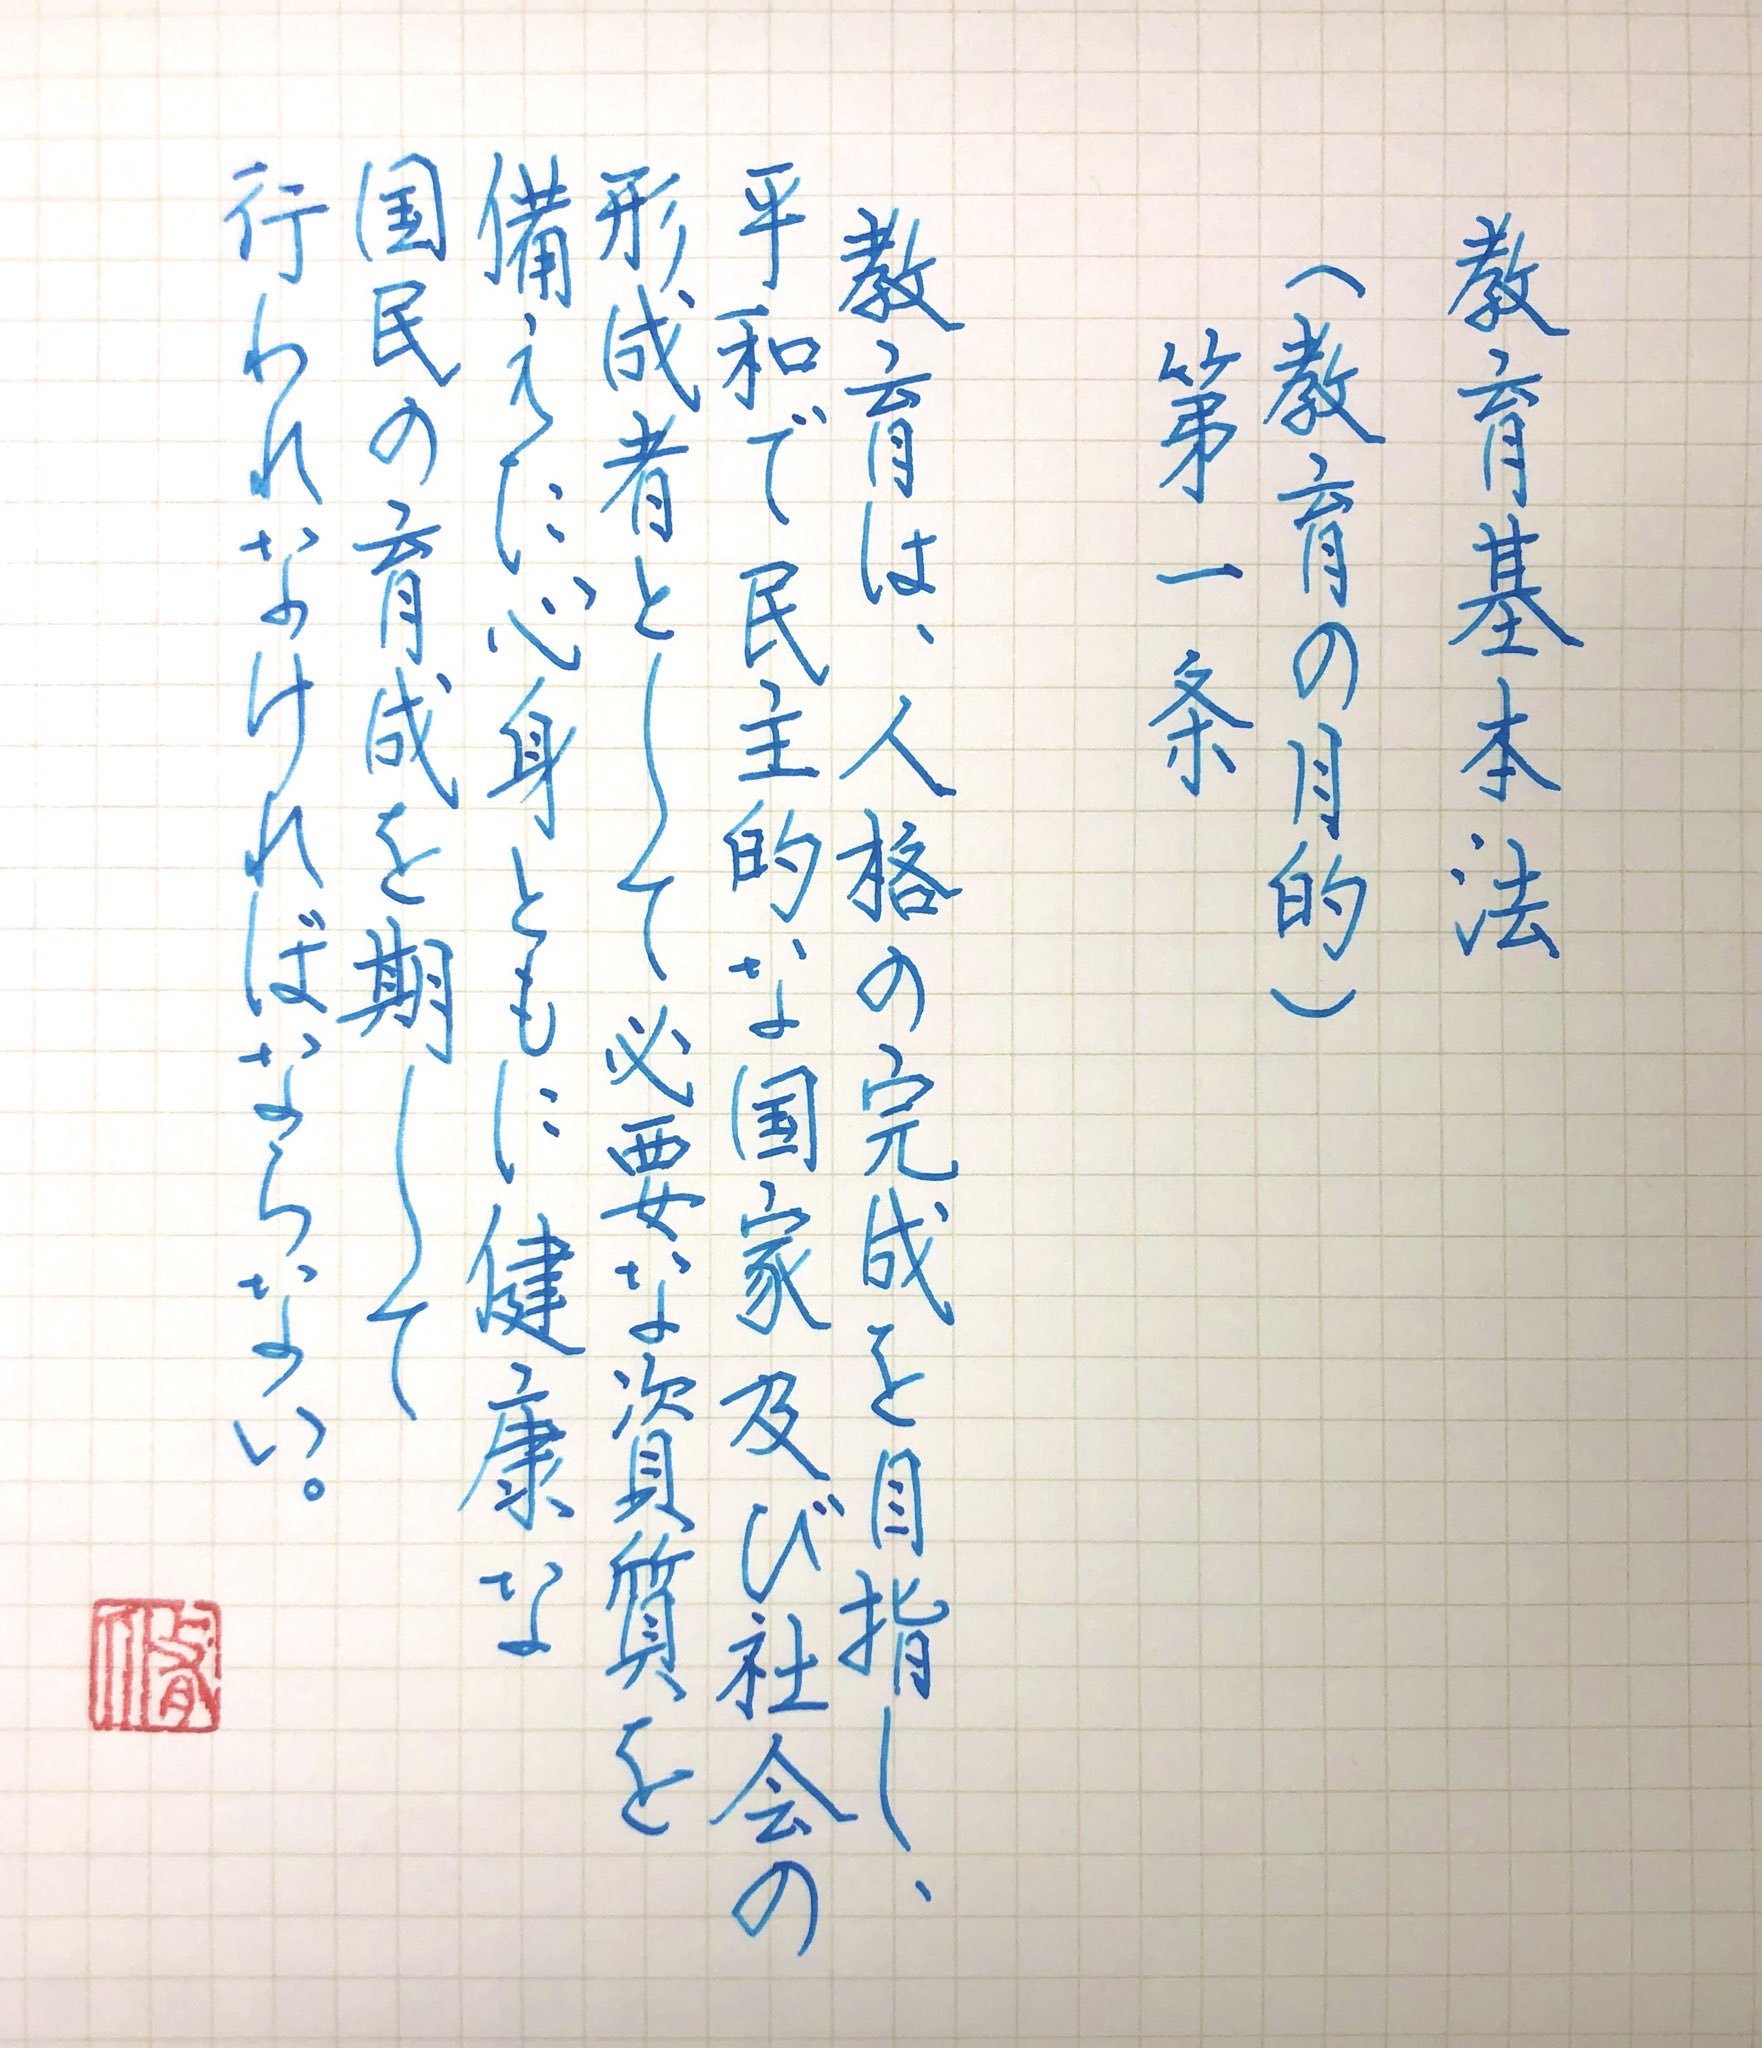 教育基本法
（教育の目的）
第一条
教育は、人格の完成を目指し、
平和で民主的な国家及び社会の
形成者として必要な資質を
備えた心身ともに健康な
国民の育成を期して
行われなければならない。